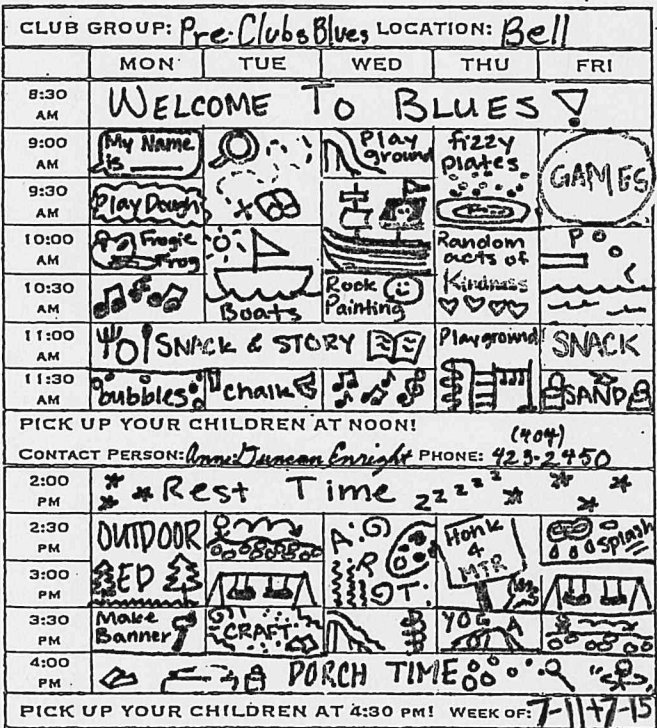 CLUB GROUP: Pre-Clubs Blues LOCATION: Bell
MON TUE WED THU FRI
8:30 AM WELCOME TO BLUES!
9:00 AM My Name is ____ Playground fizzy plates GAMES
9:30 AM Play Dough
10:00 AM Frogie Frog Random acts of Kindness
10:30 AM Boats Rock Painting
11:00 AM SNACK & STORY Playground! SNACK
11:30 AM bubbles chalk SAND
PICK UP YOUR CHILDREN AT NOON!
CONTACT PERSON: Anne Duncan Enright PHONE: (404) 423-2450
2:00 PM Rest Time zzzzz
2:30 PM OUTDOOR ED ART Honk 4 MTR splash
3:00 PM
3:30 PM Make Banner CRAFT YOGA
4:00 PM PORCH TIME
PICK UP YOUR CHILDREN AT 4:30 PM! WEEK OF: 7-11+7-15